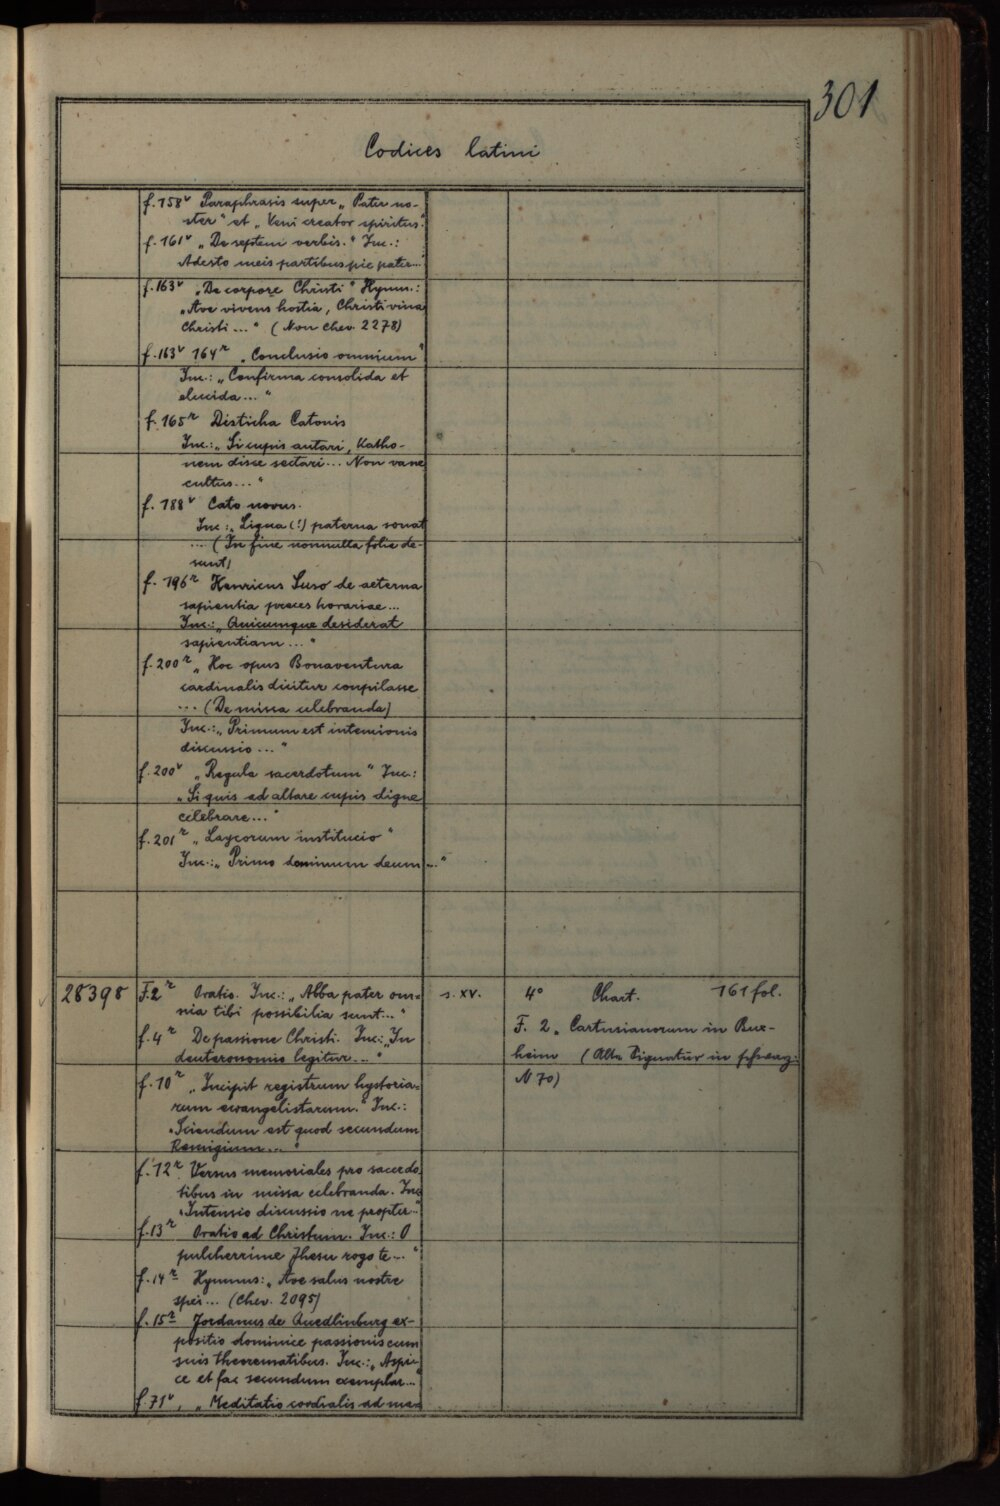 301
Codices latini
f. 158v Paraphrasis super „Pater no-
ster" et „Veni creator spiritus."
f. 161v „De septem verbis." Inc.:
Adesto meis partibus pie pater..."
f. 163v „De corpore Christi" Hymn.:
„Ave vivens hostia, Christi vina
Christi ..." (Non Chev. 2278)
f. 163v 164r „Conclusio omnium"
Inc.: „Confirma consolida et
elucida ..."
f. 165r Disticha Catonis
Inc.: „Si cupis autari, Katho-
nem disce sectari ... Non vane
cultus ..."
f. 188v Cato novus.
Inc.: „Ligua (!) paterna sonat
... (In fine nonnulla folia de-
sunt)
f. 196r Henricus Suso de aeterna
sapientia preces horariae ...
Inc.: „Quicumque desiderat
sapientiam ..."
f. 200r „Hoc opus Bonaventura
cardinalis dicitur conpilasse
... (De missa celebranda)
Inc.: „Primum est intencionis
discussio ..."
f. 200v „Regula sacerdotum" Inc.:
„Si quis ad altare cupis digne
celebrare ..."
f. 201r „Laycorum institucio"
Inc.: „Primo dominum deum ..."
28398 F. 2r Oratio. Inc.: „Abba pater om- s. XV. 4° Chart. 161 fol.
nia tibi possibilia sunt ..."
F. 2 „Cartusianorum in Bux-
f. 4r De passione Christi. Inc.: „In
heim (Alte Signatur in schwarz:
deuteronomio legitur ..."
N 70)
f. 10r „Incipit registrum hystoria-
rum ewangelistarum." Inc.:
„Sciendum est quod secundum
Remigium ..."
f. 12r Versus memoriales pro sacerdo
tibus in missa celebranda. Inc
„Intensio discussio ne propter.."
f. 13r Oratio ad Christum. Inc.: O
pulcherrime Jhesu rogo te ..."
f. 14r Hymnus: „Ave salus nostre
spei ... (Chev. 2095)
f. 15r Jordanus de Quedlinburg ex-
positio dominice passionis cum
suis theorematibus. Inc.: „Aspi-
ce et fac secundum exemplar..."
f. 71v, „Meditatio cordialis ad ma-